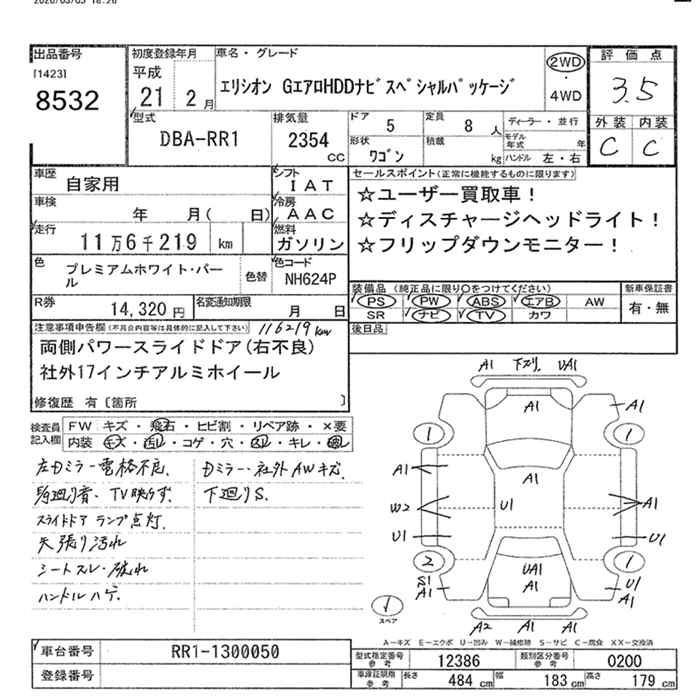 出品番号
[1423]
8532
初度登録年月
平成
21年 2月
車名・グレード
エリシオン GエアロHDDナビスペシャルパッケージ
2WD
・
4WD
評価点
3.5
外装 内装
C C
型式
DBA-RR1
排気量
2354
CC
ドア 5
定員 8人
形状 ワゴン
積載 kg
ディーラー・並行
モデル年式 年
ハンドル 左・右
車歴
自家用
シフト
IAT
車検
年 月( 日)
冷房
AAC
走行
11万6千219 km
燃料
ガソリン
色
プレミアムホワイト・パール
色替
色コード
NH624P
R券
14,320円
名変通知期限
月 日
セールスポイント(正常に機能するものに限ります)
☆ユーザー買取車!
☆ディスチャージヘッドライト!
☆フリップダウンモニター!
装備品 (純正品に限り○をつけてください)
PS PW ABS エアB AW
SR ナビ TV カワ
新車保証書
有・無
後日品
注意事項申告欄(不具合内容等は具体的に記入して下さい)
116219km
両側パワースライドドア(右不良)
社外17インチアルミホイール
修復歴 有〔箇所 〕
検査員記入欄
FW キズ・飛石・ヒビ割・リペア跡・×要
内装 キズ・汚レ・コゲ・穴・スレ・キレ・
左Dミラー電格不良.
Dミラー・社外AWキズ.
TV映らず.
下廻りS.
スライドドア ランプ点灯.
天張り汚れ
シートスレ・破れ
ハンドルハゲ.
A1 下スリ. UA1
A1
A1
1
1
A1
A1
W2
U1
A1
U1
U1
2
1
UA1
A1
S1
A1
U1
A1
A2 A1 A1
1
スペア
A-キズ E-エクボ U-凹み W-補修跡 S-サビ C-腐食 XX-交換済
車台番号
RR1-1300050
登録番号
型式指定番号 参考
12386
類別区分番号 参考
0200
車庫証明用 参考
長さ 484cm 幅 183cm 高さ 179cm